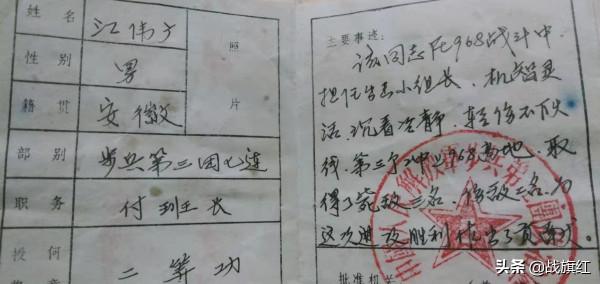 姓名 江伟于
性别 男
籍贯 安徽
部别 步兵第三团七连
职务 付班长
授何 二等功
照片
主要事迹：
该同志在968战斗中
担任尖刀小组长、机智灵
活、沉着冷静、轻伤不下火
线、第三个冲上968高地、取
得了毙敌三名、伤敌三名、为
这次进攻胜利作出了贡献。
批准机关
头条@战旗红